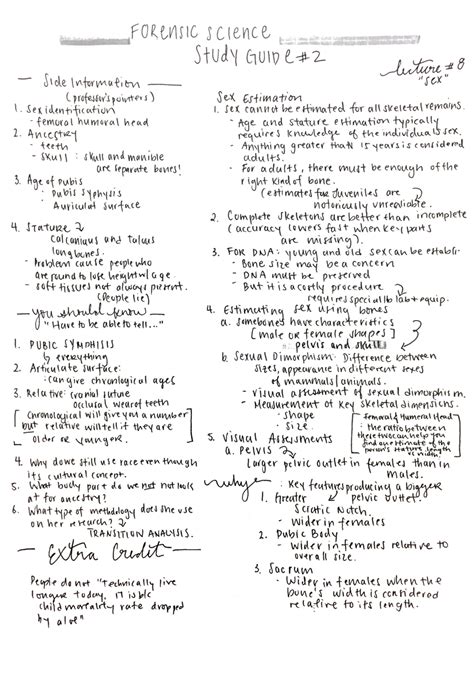 FORENSIC SCIENCE
STUDY GUIDE #2
lecture #8
"sex"
Side Information
(professor's pointers)
1. Sex identification
- femoral humoral head
2. Ancestry
- teeth
- skull: skull and manible
are separate bones!
3. Age of Pubis
- Pubis Syphysis
- Auricular surface
4. Stature
Calcanious and Talus
long bones.
- Problem cause people who
are found to lose height w/ age
- soft tissues not always present.
(People lie)
you should know
"Have to be able to tell..."
1. PUBIC SYMPHISIS
↳ everything
2. Articulate surface:
: can give chronlogical ages
3. Relative: cranial suture
occlusal wear of teeth
[Chronological will give you a number
but relative will tell if they are
older or younger.]
4. Why do we still use race even though
its cultural concept.
5. What body part do we not look
at for ancestry?
6. What type of methodology does she use
on her research?
TRANSITION ANALYSIS.
Extra Credit
People do not "technically live
longer today. It is b/c
child mortality rate dropped
Sex Estimation
1. Sex cannot be estimated for all skeletal remains.
- Age and stature estimation typically
requires knowledge of the individual sex.
- Anything greater than 15 years is considered
adults.
- For adults, there must be enough of the
right kind of bone.
(estimates for juveniles are
notoriously unreviable.
2. Complete skeletons are better than incomplete
(accuracy lowers fast when key parts
are missing).
3. FOR DNA: young and old sex can be establi-
- Bone size may be a concern
- DNA must be preserved
- But it is a costly procedure
requires special lab + equip.
4. Estimating sex using bones
a. some bones have characteristics
[male or female shapes]
: pelvis and skull
b. Sexual Dimorphism: Difference between
sizes, appearance in different sexes
of mammals/animals.
- visual assessment of sexual dimorphism.
- Measurement of key skeletal dimensions.
- shape
- size.
[femoral & Humeral Head:
: the ratio between
these two can help you
find an estimate of the
person's stature length
5. Visual Assessments
a. pelvis
Larger pelvic outlet in females than in
males.
why
: Key features producing a bigger
pelvic outlet.
1. Greater
Sciatic Notch.
- Wider in females
2. Pubic Body
- Wider in females relative to
overall size.
3. Sacrum
- Wider in females when the
bone's width is considered
relative to its length.